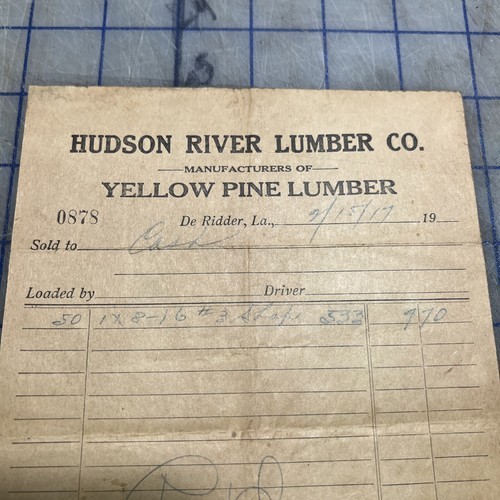 HUDSON RIVER LUMBER CO.
MANUFACTURERS OF
YELLOW PINE LUMBER
0878 De Ridder, La., 2/15/17 19
Sold to Cash
Loaded by Driver
50 1x8-16 #3 Shlp 533 9 70
Pd